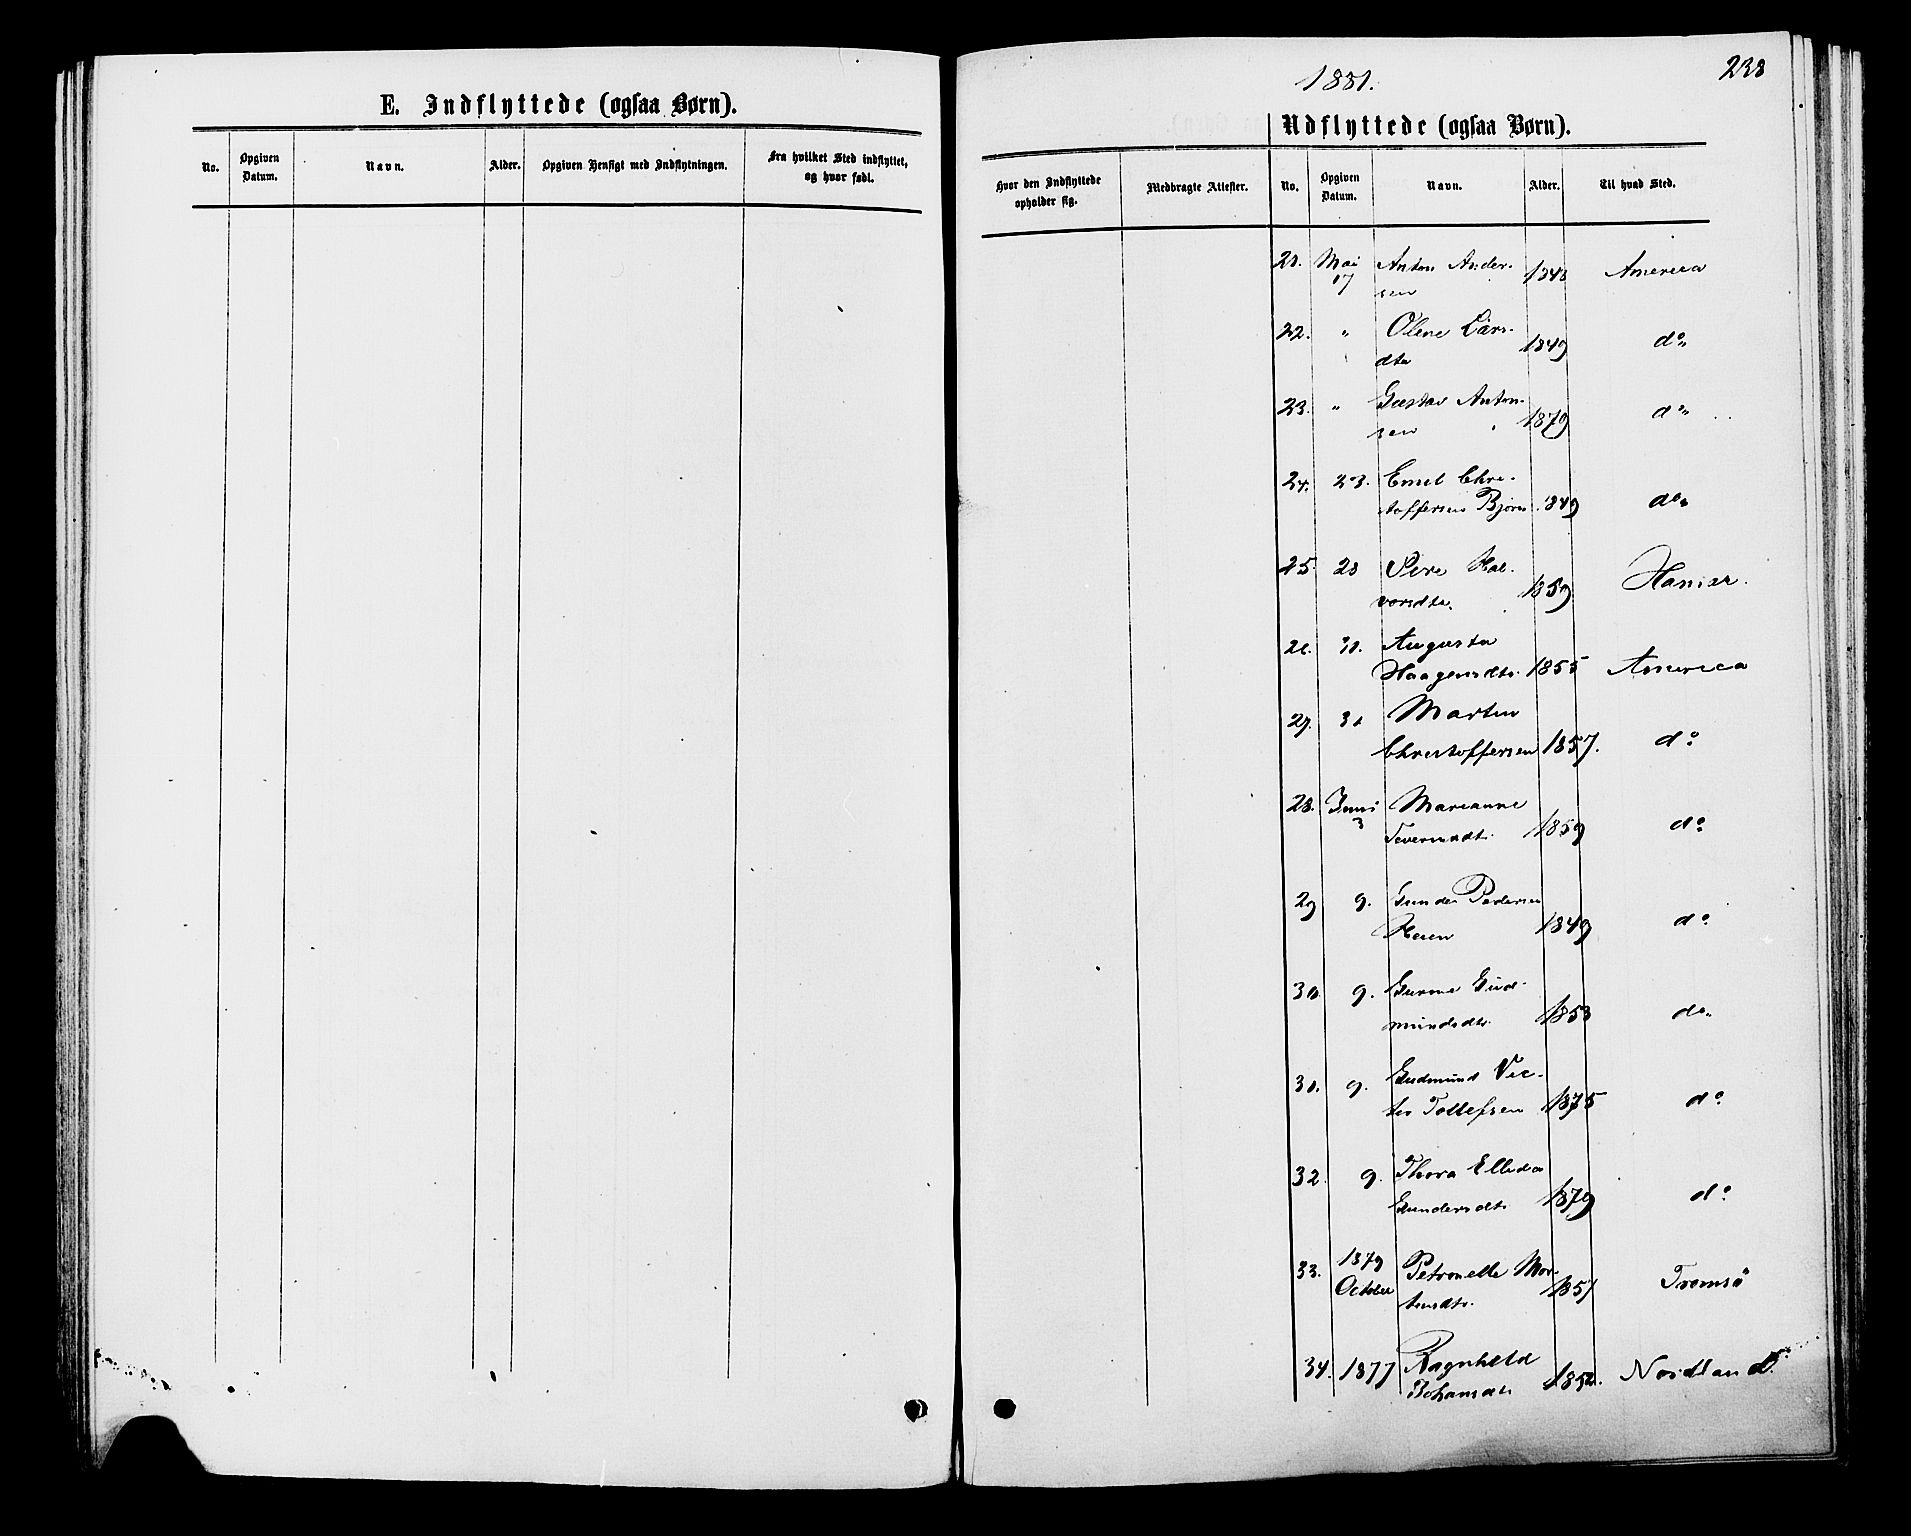 E. Indflyttede (ogsaa Børn).
No. Opgiven Datum. Navn. Alder. Opgiven Hensigt med Indflytningen. Fra hvilket Sted indflyttet, og hvor født.
1881.
238
Udflyttede (ogsaa Børn).
Hvor den Indflyttede opholder sig. Medbragte Attester. No. Opgiven Datum. Navn. Alder. Til hvad Sted.
21. Mai Anton Ander-
17 sen 1848 America
22. " Olene Lars-
dtr 1849 do
23. " Gustav Anton-
sen 1879 do
24. 23. Emil Chri-
stoffersen Bjørn 1849 do
25. 28 Siri Hal-
vorsdtr. 1859
26. 31. Augusta
Haagensdtr. 1855 America
27. 31 Martin
Christoffersen 1857. do
28. Juni Marianne
3 Severinsdtr. 1859 do
29 9. Gunder Pedersen
1849 do
30. 9. Gurine Gud-
mundsdtr. 1853 do
31. 9. Gudmund Vic-
tor Tollefsen 1875 do
32. 9. Thora Elleda
Gundersdtr 1879 do
33. 1879 Petronelle Mor-
October tensdtr. 1857 Tromsö
34. 1877 Ragnhild
Johansdtr 1852. Nordland.